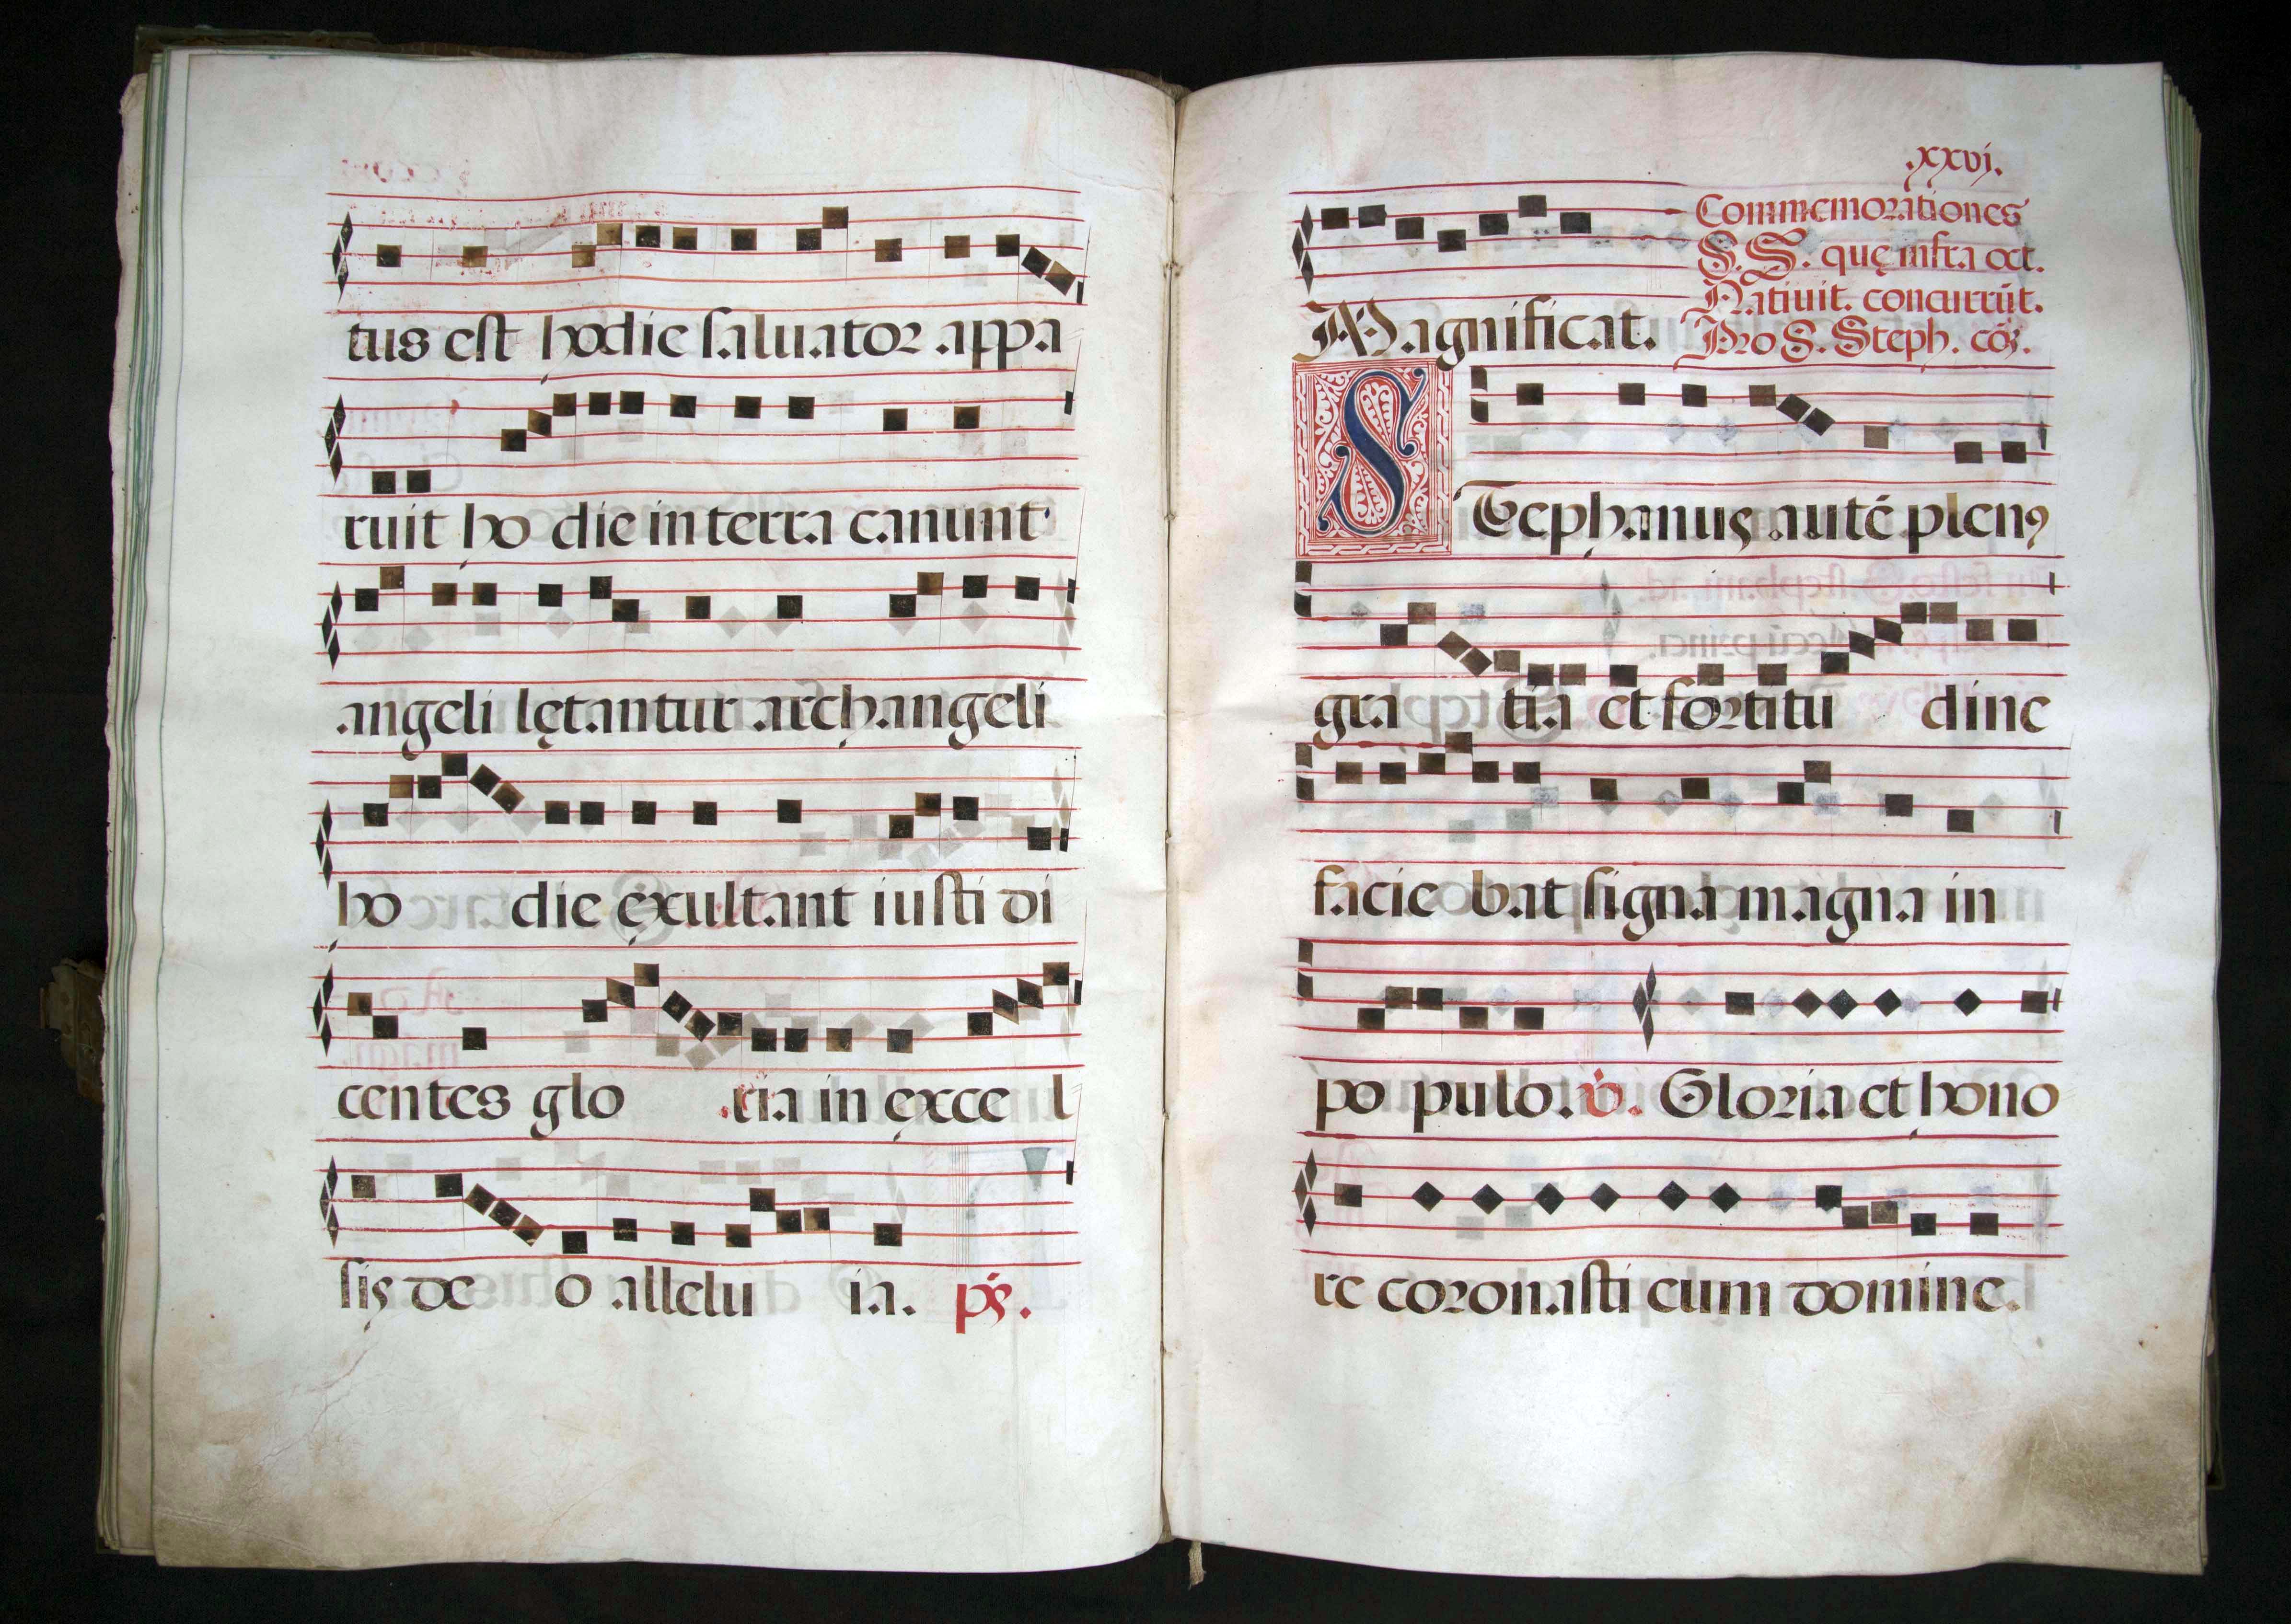 tus est hodie saluator appa
ruit ho die in terra canunt
angeli lętantur archangeli
ho die exultant iusti di
centes glo ria in exce l
sis de o allelu ia. ps.
.xxvj.
Commemorationes
S. S. quę infra oct.
Natiuit. concurrūt.
Pro S. Steph. cōz.
Magnificat.
STephanus autē plenꝰ
gra tia et fortitu dine
facie bat signa magna in
po pulo. v. Gloria et hono
re coronasti eum domine.